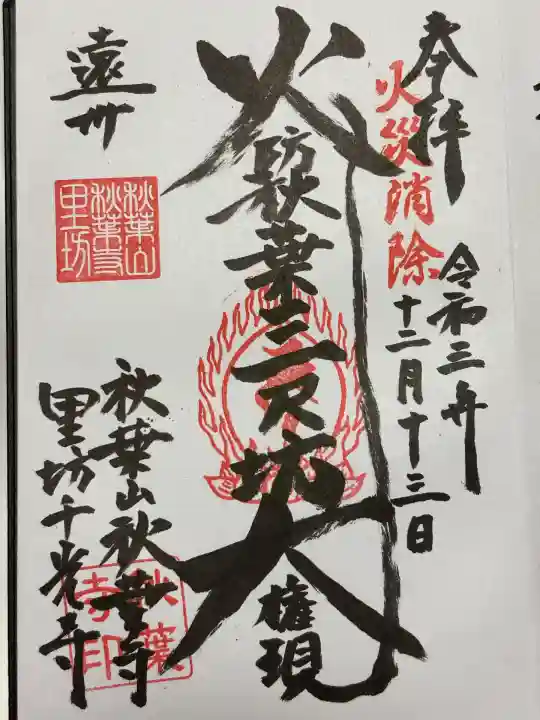 奉拝
火災消除
令和三年
十二月十三日
火防
秋葉三尺坊大
権現
遠州
秋葉山
秋葉寺
里坊
秋葉山秋葉寺
里坊千光寺
秋葉
寺印